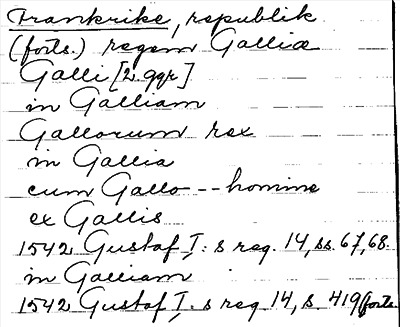 Frankrike, republik
(forts.) regem Galliæ
Galli [2 ggr]
in Galliam
Gallorum rex
in Gallia
cum Gallo -- homine
ex Gallis
1542 Gustaf I: s reg. 14, ss. 67, 68.
in Galliam
1542 Gustaf I: s reg 14, s. 419 (forts.